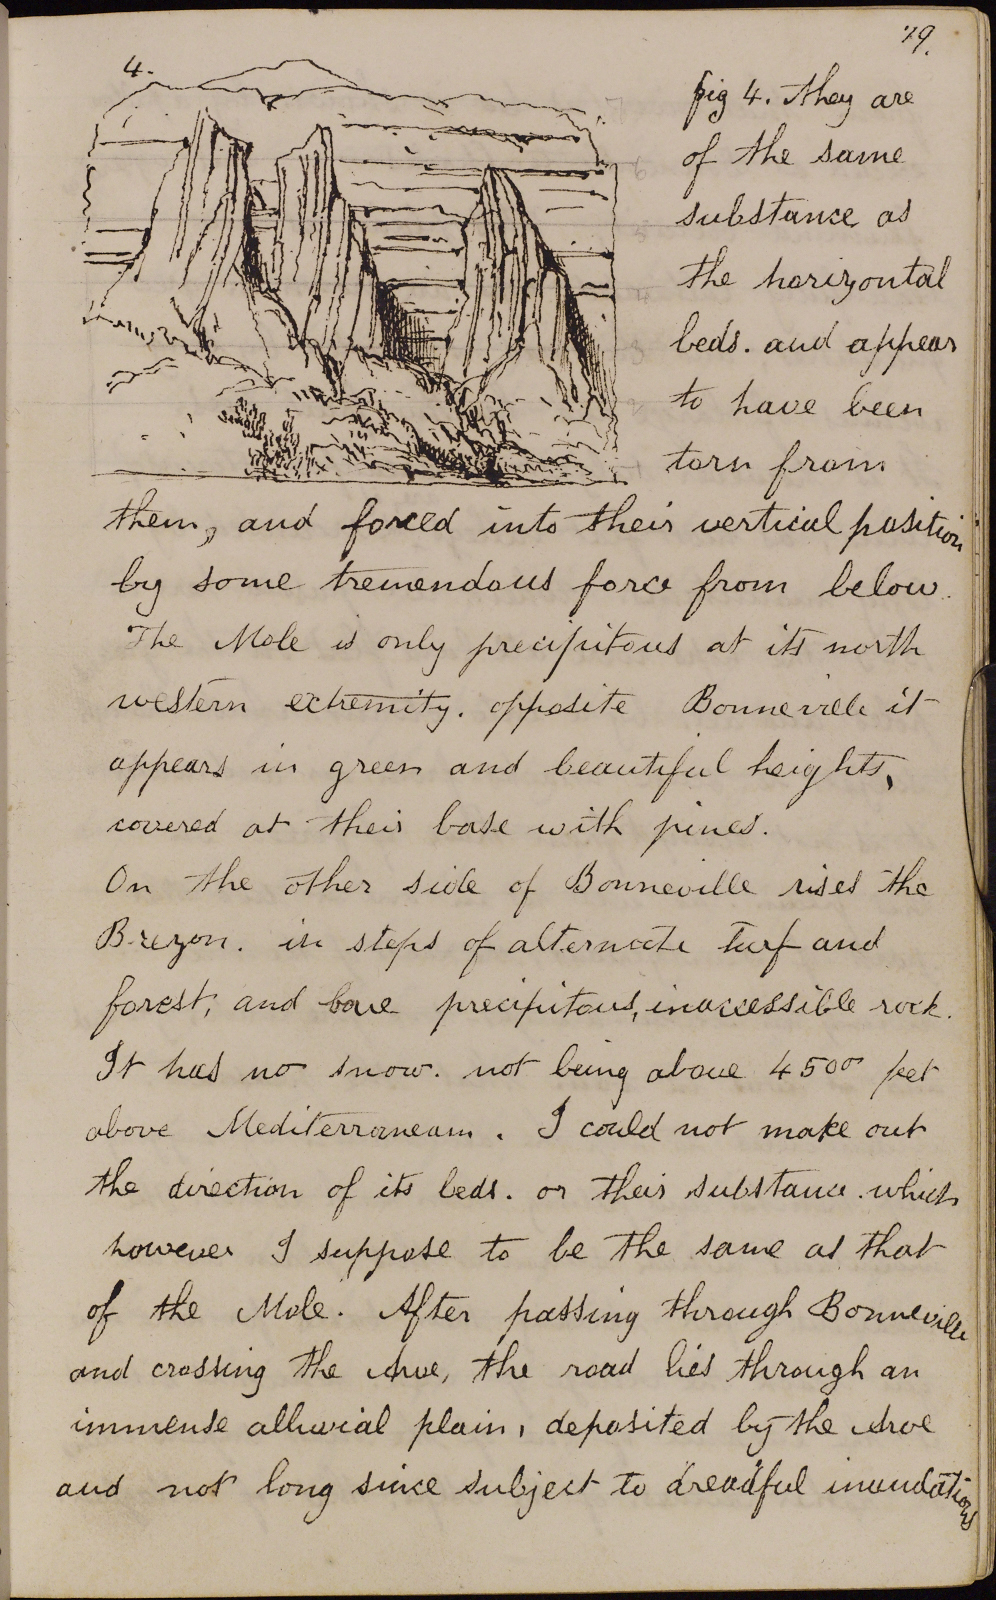 79.
4.
fig 4. They are
of the same
substance as
the horizontal
beds. and appear
to have been
torn from
them, and forced into their vertical position
by some tremendous force from below.
The Mole is only precipitous at its north
western extremity. opposite Bonneville it
appears in green and beautiful heights,
covered at their base with pines.
On the other side of Bonneville rises the
Brezon. in steps of alternate turf and
forest, and bare precipitous, inaccessible rock.
It has no snow. not being above 4500 feet
above Mediterranean. I could not make out
the direction of its beds. or their substance. which
however I suppose to be the same as that
of the Mole. After passing through Bonneville
and crossing the Arve, the road lies through an
immense alluvial plain, deposited by the Arve
and not long since subject to dreadful inundations